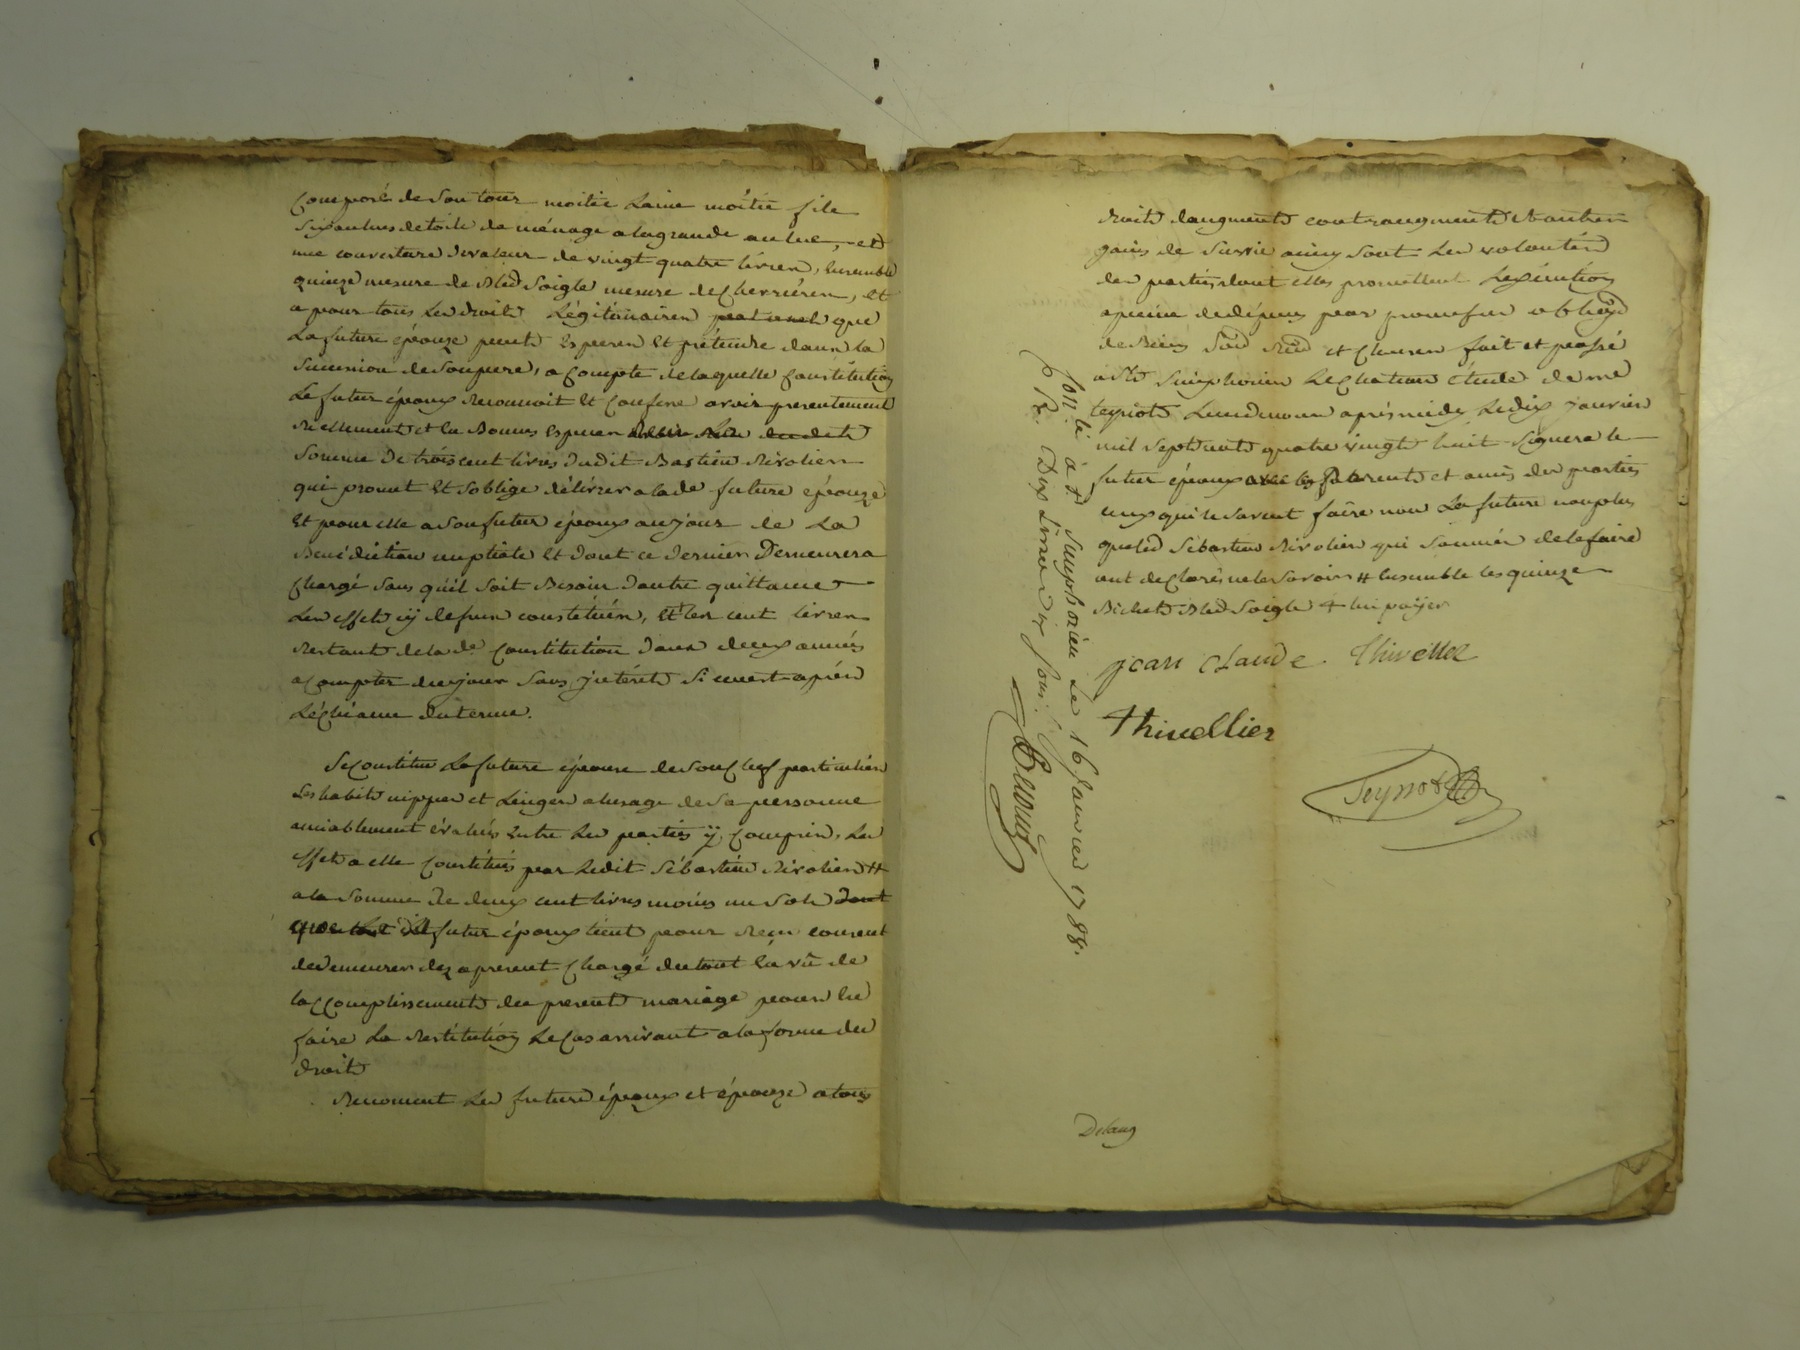 Composé de son tour moitié Laine moitié file
Six aulnes de toile de ménage a la grande aulne, et
une couverture de valeur de vingt quatre livres, Ensemble
quinze mesure de Bled Soigle mesure de Cherriéres, Et
a pour tous Les droits Légitimaires que
La future épouze peut Esperer Et prétendre dans la
Succession de Son pere, a Compte de laquelle Constitution
Le futur époux Reconnoit Et Confesse avoir presentement
Réellement et En Bonnes Especes
Somme De trois cent livres dudit Bastien Rivolier
qui promet Et S'oblige délivrer a lade future epouze
Et pour elle a Son futur époux au jour de La
Benédiction nuptiale Et dont ce dernier Demeurera
Chargé Sans qu'il Soit Besoin d'autre quittance
Les effets cy dessus constitués, Et les cent livres
Restant de la de Constitution dans deux années
a Compter du jour Sans jntérêts Si cenest aprés
L'échéance du terme.
Se Constitue La future épouse de Son Chef particulier
Ses habits nippes et Linges a lusage de Sa personne
amiablement évalués Entre Les parties ÿ Compris, Les
effets a elle Constitués par Ledit Sébastien Rivolier #
a la Somme De deux cent livres moins un Sols dont
futur époux tient pour Reçu consent
de demeurer dez a present Chargé du tout En vû de
laccomplissement du present mariage pour En
faire La Restitution Le Cas arrivant a la forme du
droit
Renoncent Les futurs époux et épouze a tous
droits daugments contraugments Et autres
gains de Survie ainsy Sont Les volontés
des parties dont elles promettent Lexécution
apeine de dépens par promesse obligo
de Biens Soo Roo et Clauses fait et passé
a St Simphorien Le Chateau Etude de me
teynot Lundmain aprés midy Le dix Janvier
mil Sept cents quatre vingt huit Signera le
futur époux avec les parents et amis des parties
ceux qui le Savent faire non La future non plus
que led Sébastien Rivolier qui Sommés de le faire
ont déclarés ne le Savoir # Ensemble les quinze
Bichets Bled Soigle # lui payer
jean claude Thivellier
Thivellier
Teynot
Conlé à St Simphorien Le 16 Janvier 1788.
R. Dix Livres dix sous.
Delaus